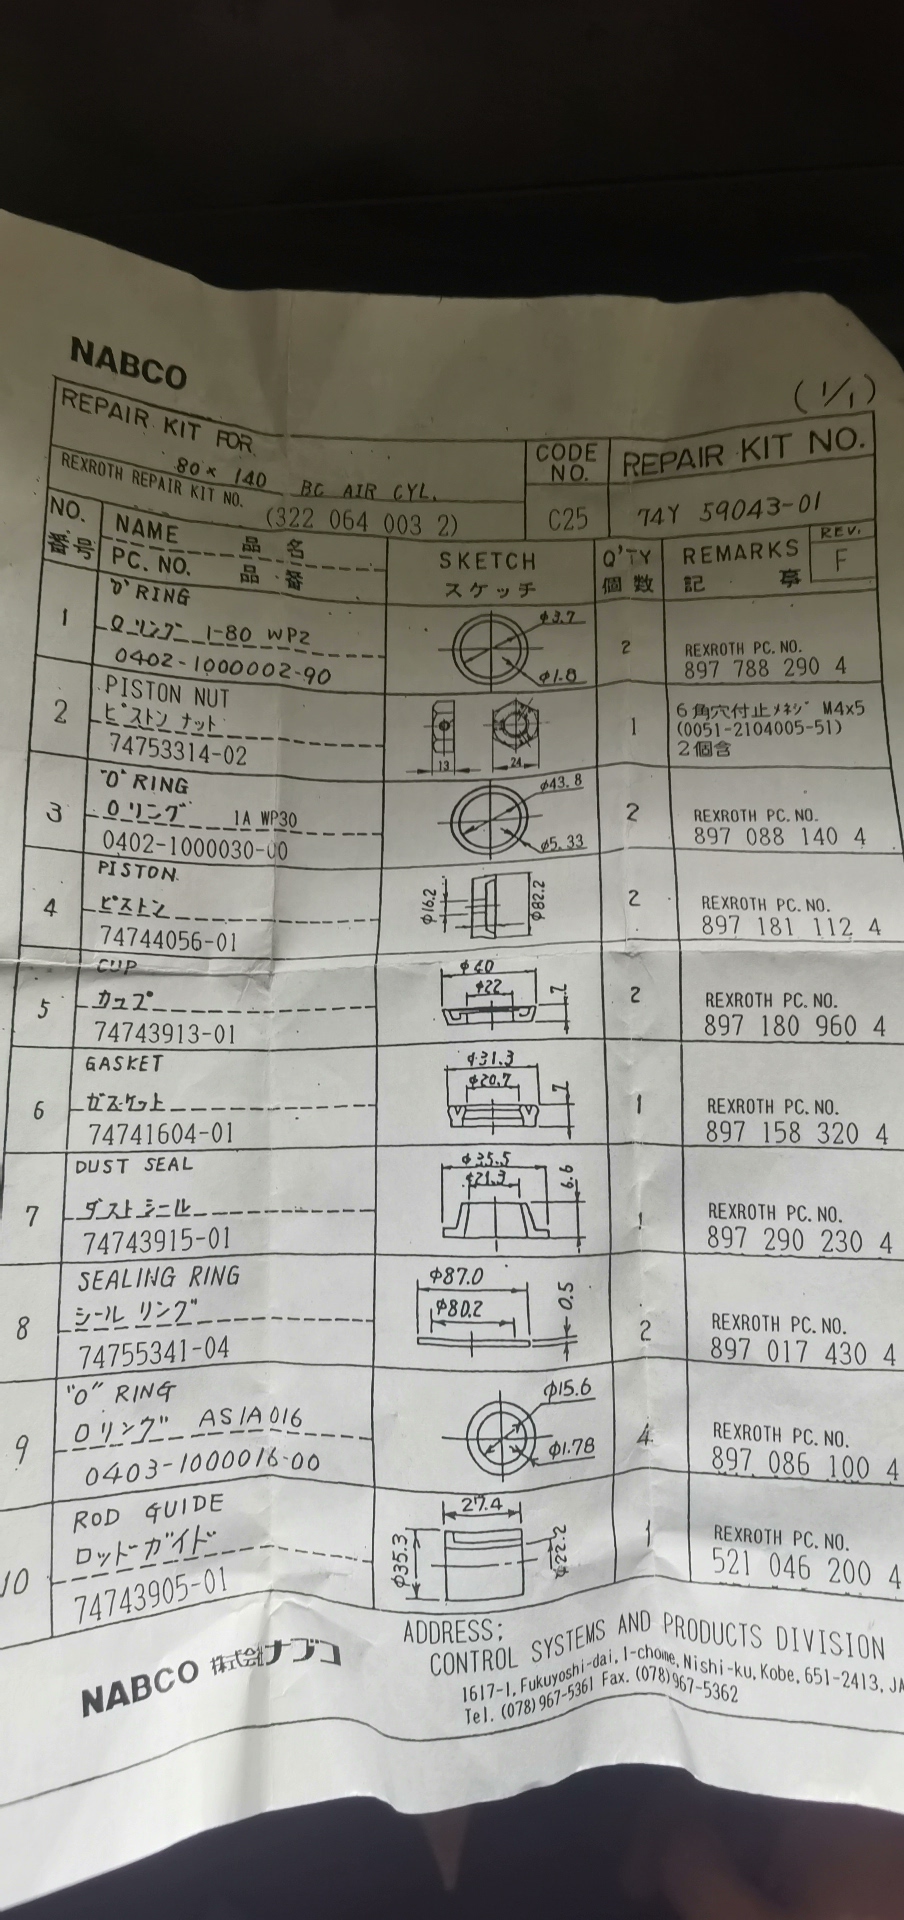 NABCO
(1/1)
REPAIR KIT FOR
80 × 140 BC AIR CYL.
REXROTH REPAIR KIT NO.
(322 064 003 2)
CODE NO.
C25
REPAIR KIT NO.
74Y 59043-01
NO. 番号
NAME 品名
PC. NO. 品番
SKETCH
スケッチ
Q'TY
個数
REMARKS
記事
REV.
F
1
"O" RING
Oリング 1-80 WP2
0402-1000002-90
φ3.7
φ1.8
2
REXROTH PC. NO.
897 788 290 4
2
PISTON NUT
ピストン ナット
74753314-02
13
24
1
6角穴付止メネジ M4x5
(0051-2104005-51)
2個含
3
"O" RING
Oリング 1A WP30
0402-1000030-00
φ43.8
φ5.33
2
REXROTH PC. NO.
897 088 140 4
4
PISTON
ピストン
74744056-01
φ16.2
φ82.2
2
REXROTH PC. NO.
897 181 112 4
5
CUP
カップ
74743913-01
φ40
φ22
7
2
REXROTH PC. NO.
897 180 960 4
6
GASKET
ガスケット
74741604-01
φ31.3
φ20.7
7
1
REXROTH PC. NO.
897 158 320 4
7
DUST SEAL
ダストシール
74743915-01
φ35.5
φ21.3
6.6
1
REXROTH PC. NO.
897 290 230 4
8
SEALING RING
シール リング
74755341-04
φ87.0
φ80.2
0.5
2
REXROTH PC. NO.
897 017 430 4
9
"O" RING
Oリング AS1A016
0403-1000016-00
φ15.6
φ1.78
4
REXROTH PC. NO.
897 086 100 4
10
ROD GUIDE
ロッドガイド
74743905-01
27.4
φ35.3
φ22.2
1
REXROTH PC. NO.
521 046 200 4
NABCO 株式会社ナブコ
ADDRESS;
CONTROL SYSTEMS AND PRODUCTS DIVISION
1617-1, Fukuyoshi-dai, 1-chome, Nishi-ku, Kobe, 651-2413, JA
Tel. (078)967-5361 Fax. (078)967-5362